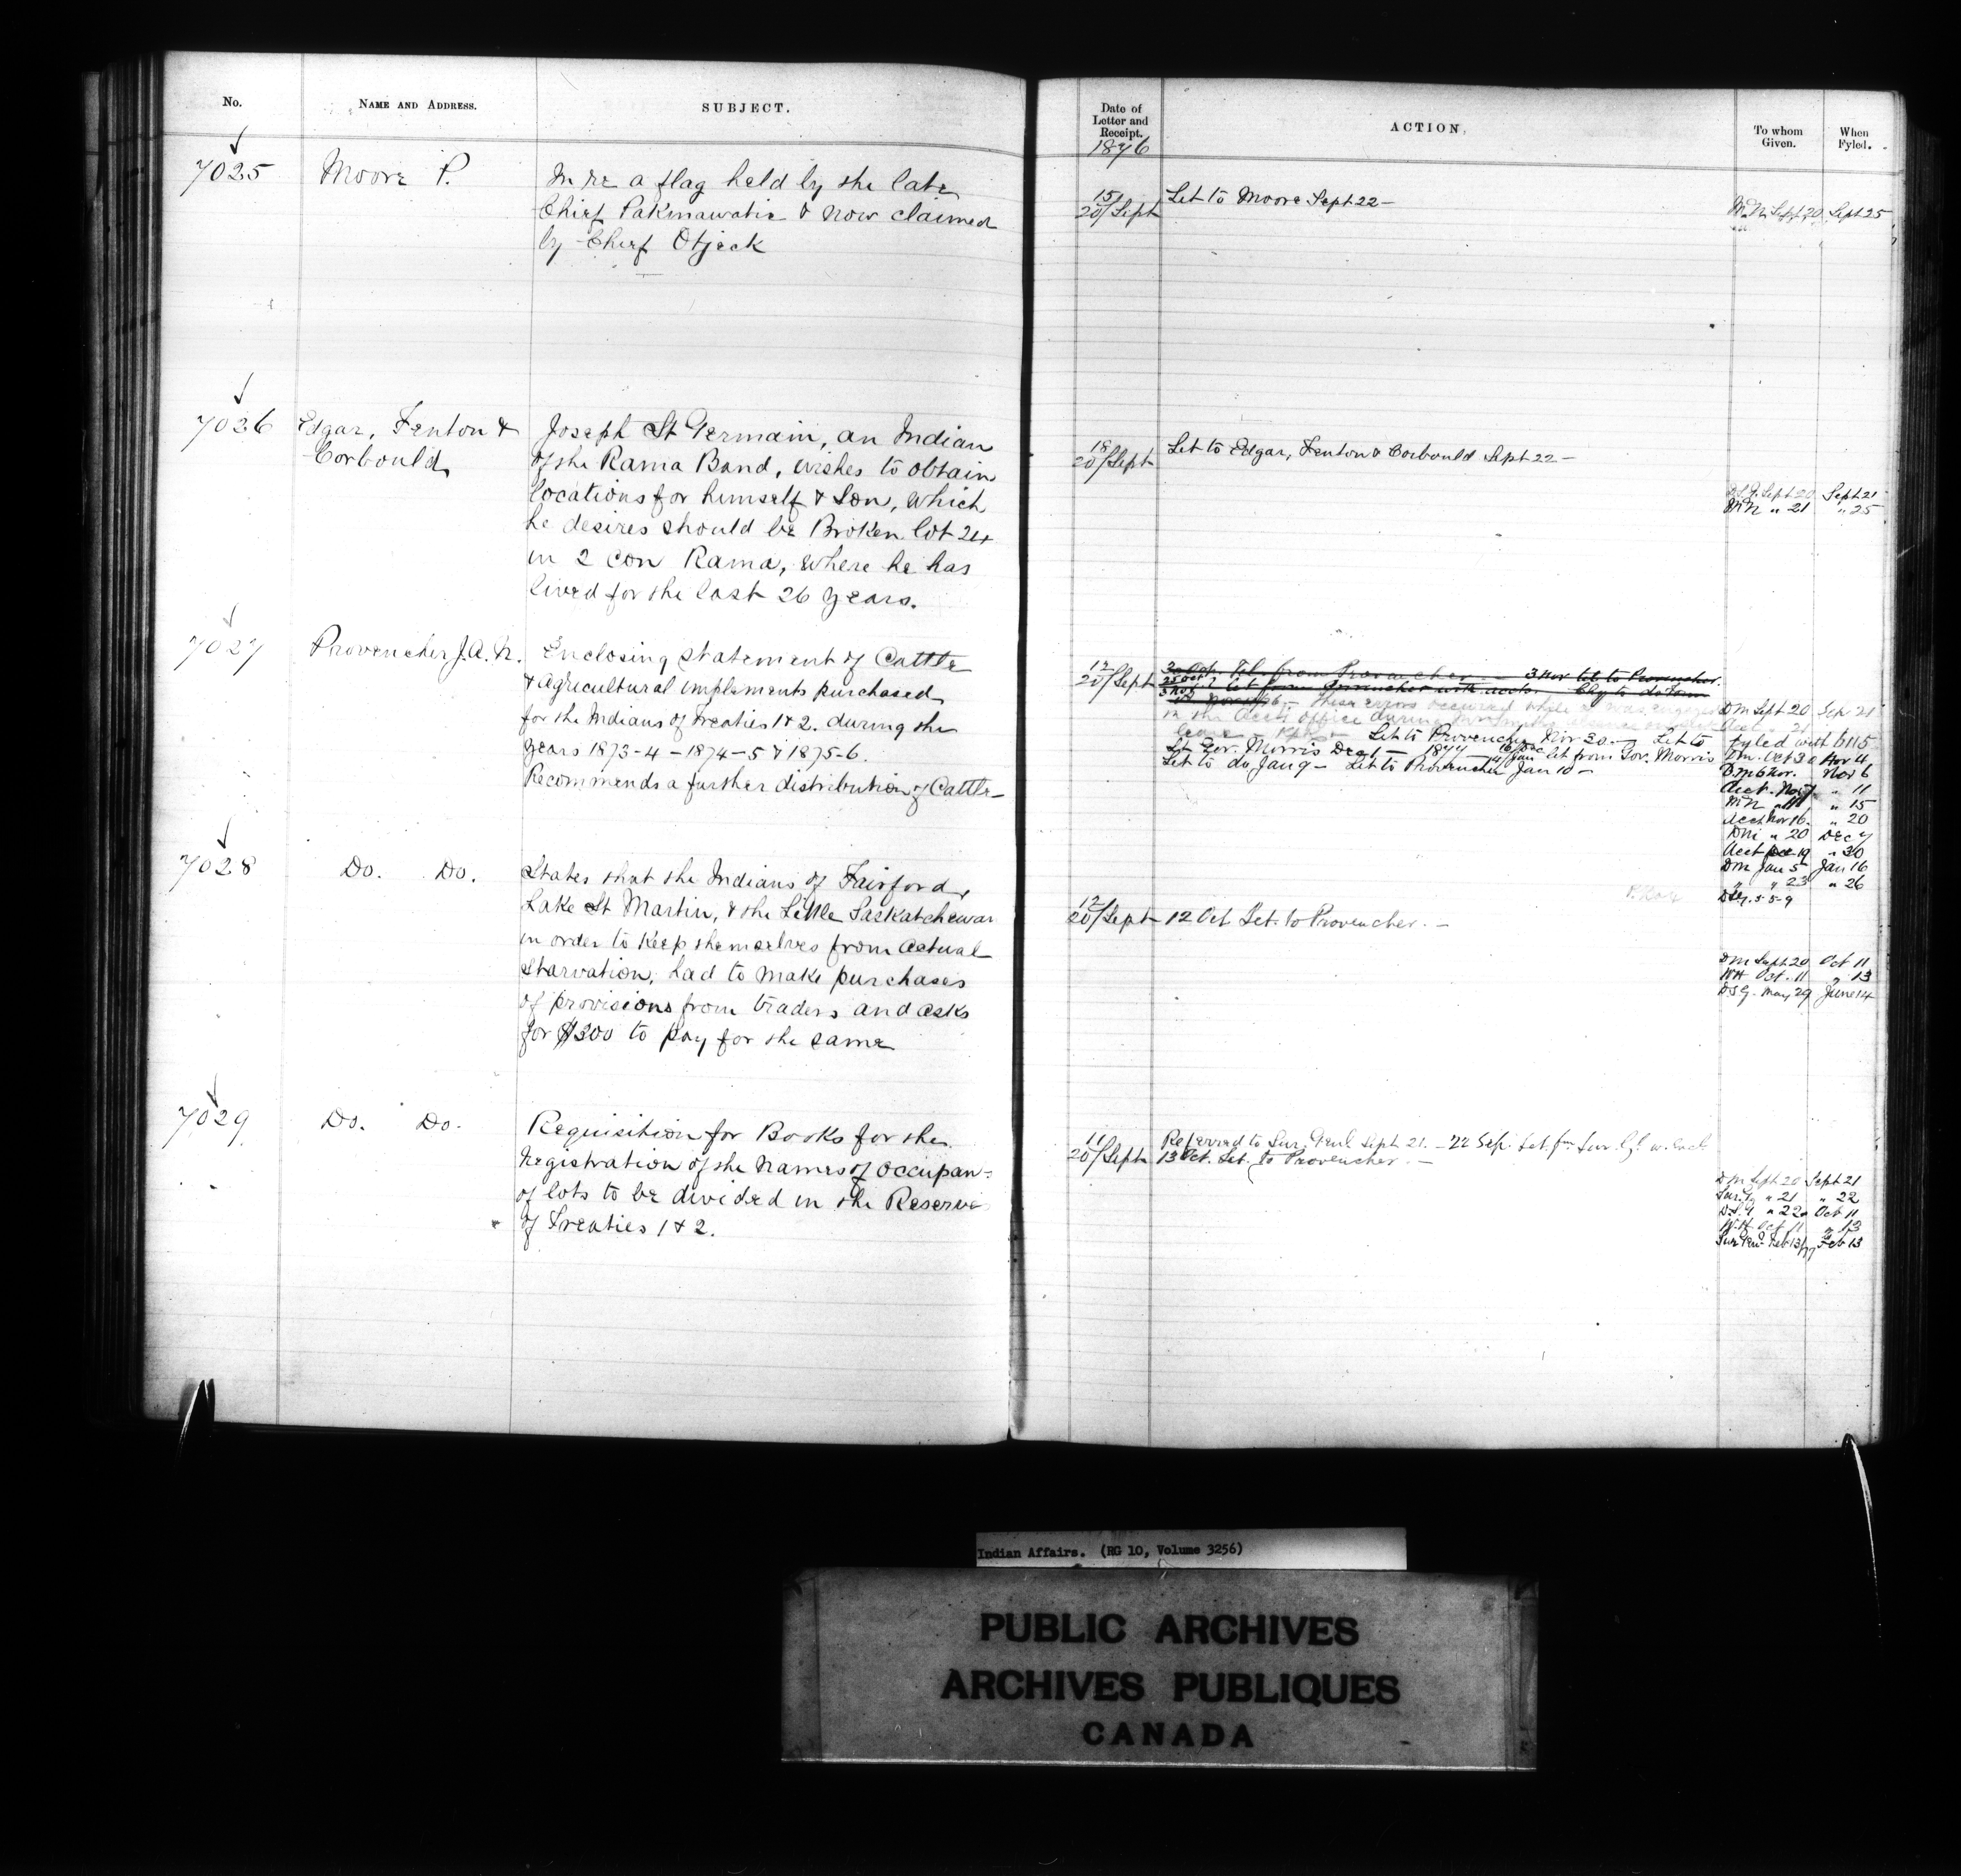 No.
NAME AND ADDRESS.
SUBJECT.
7025
Moore P.
In re a flag held by the late
Chief Pakmawatie & now claimed
by Chief Otjeck
7026
Edgar, Fenton &
Corbould
Joseph St Germain, an Indian
of the Rama Band, wishes to obtain
locations for himself & Son, which
he desires should be Broken lot 24
in 2 con Rama, where he has
lived for the last 26 years.
7027
Provencher J.A.N.
Enclosing statement of Cattle
& agricultural implements purchased
for the Indians of Treaties 1 & 2. during the
years 1873-4 - 1874-5 & 1875-6.
Recommends a further distribution of Cattle-
7028
Do. Do.
States that the Indians of Fairford,
Lake St Martin, & the Little Saskatchewan
in order to keep themselves from actual
starvation, had to make purchases
of provisions from traders and asks
for $300 to pay for the same
7029
Do. Do.
Requisition for Books for the
registration of the names of occupan=
of lots to be divided in the Reserve
of Treaties 1 & 2.
Date of
Letter and
Receipt.
1876
ACTION.
To whom
Given.
When
Fyled.
15/
20/Sept
Let to Moore Sept 22-
Sept 20 Sept 25
18
20/Sept
Let to Edgar, Fenton & Corbould Sept 22-
Sept 20 Sept 21
MN " 21 " 25
12
20/Sept
Tel. from Provencher - 3 Nov tel to Provencher.
25 Oct
3 Nov Let from Provencher with accts.
these errors occurred while I was engaged
in the Acct's office during absence
leave - Let to Provencher Nov 30 - Let to
Lt Gov. Morris Dec 1 - 1877 - Let from Gov. Morris
Let to do Jan 9 - Let to Provencher Jan 10 -
DM Sept 20 Sep 21
Fyled with 6115
Dm. Oct 30 Nov 4
Dm 6 Nov. Nov 6
Acct. Nov 7 " 11
MN " 15
Acct Nov 16. " 20
Dm " 20 Dec 7
Acct Dec 19 " 30
DM Jan 5 Jan 16
" " 23 " 26
12
20/Sept
12 Oct Let. to Provencher. -
DM Sept 20 Oct 11
WH Oct. 11 " 13
DSG. May 29 June 14
11
20/Sept
Referred to Sur. Genl Sept 21. - 22 Sep. Let. fm Sur Gl. w. encl.
13 Oct. Let. to Provencher. -
DM Sept 20 Sept 21
Sur. G " 21 " 22
D.S.G " 22 Oct 11
W.H. Oct 11 " 13
Sur Gen. Feb 13/77 Feb 13
Indian Affairs. (RG 10, Volume 3256)
PUBLIC ARCHIVES
ARCHIVES PUBLIQUES
CANADA